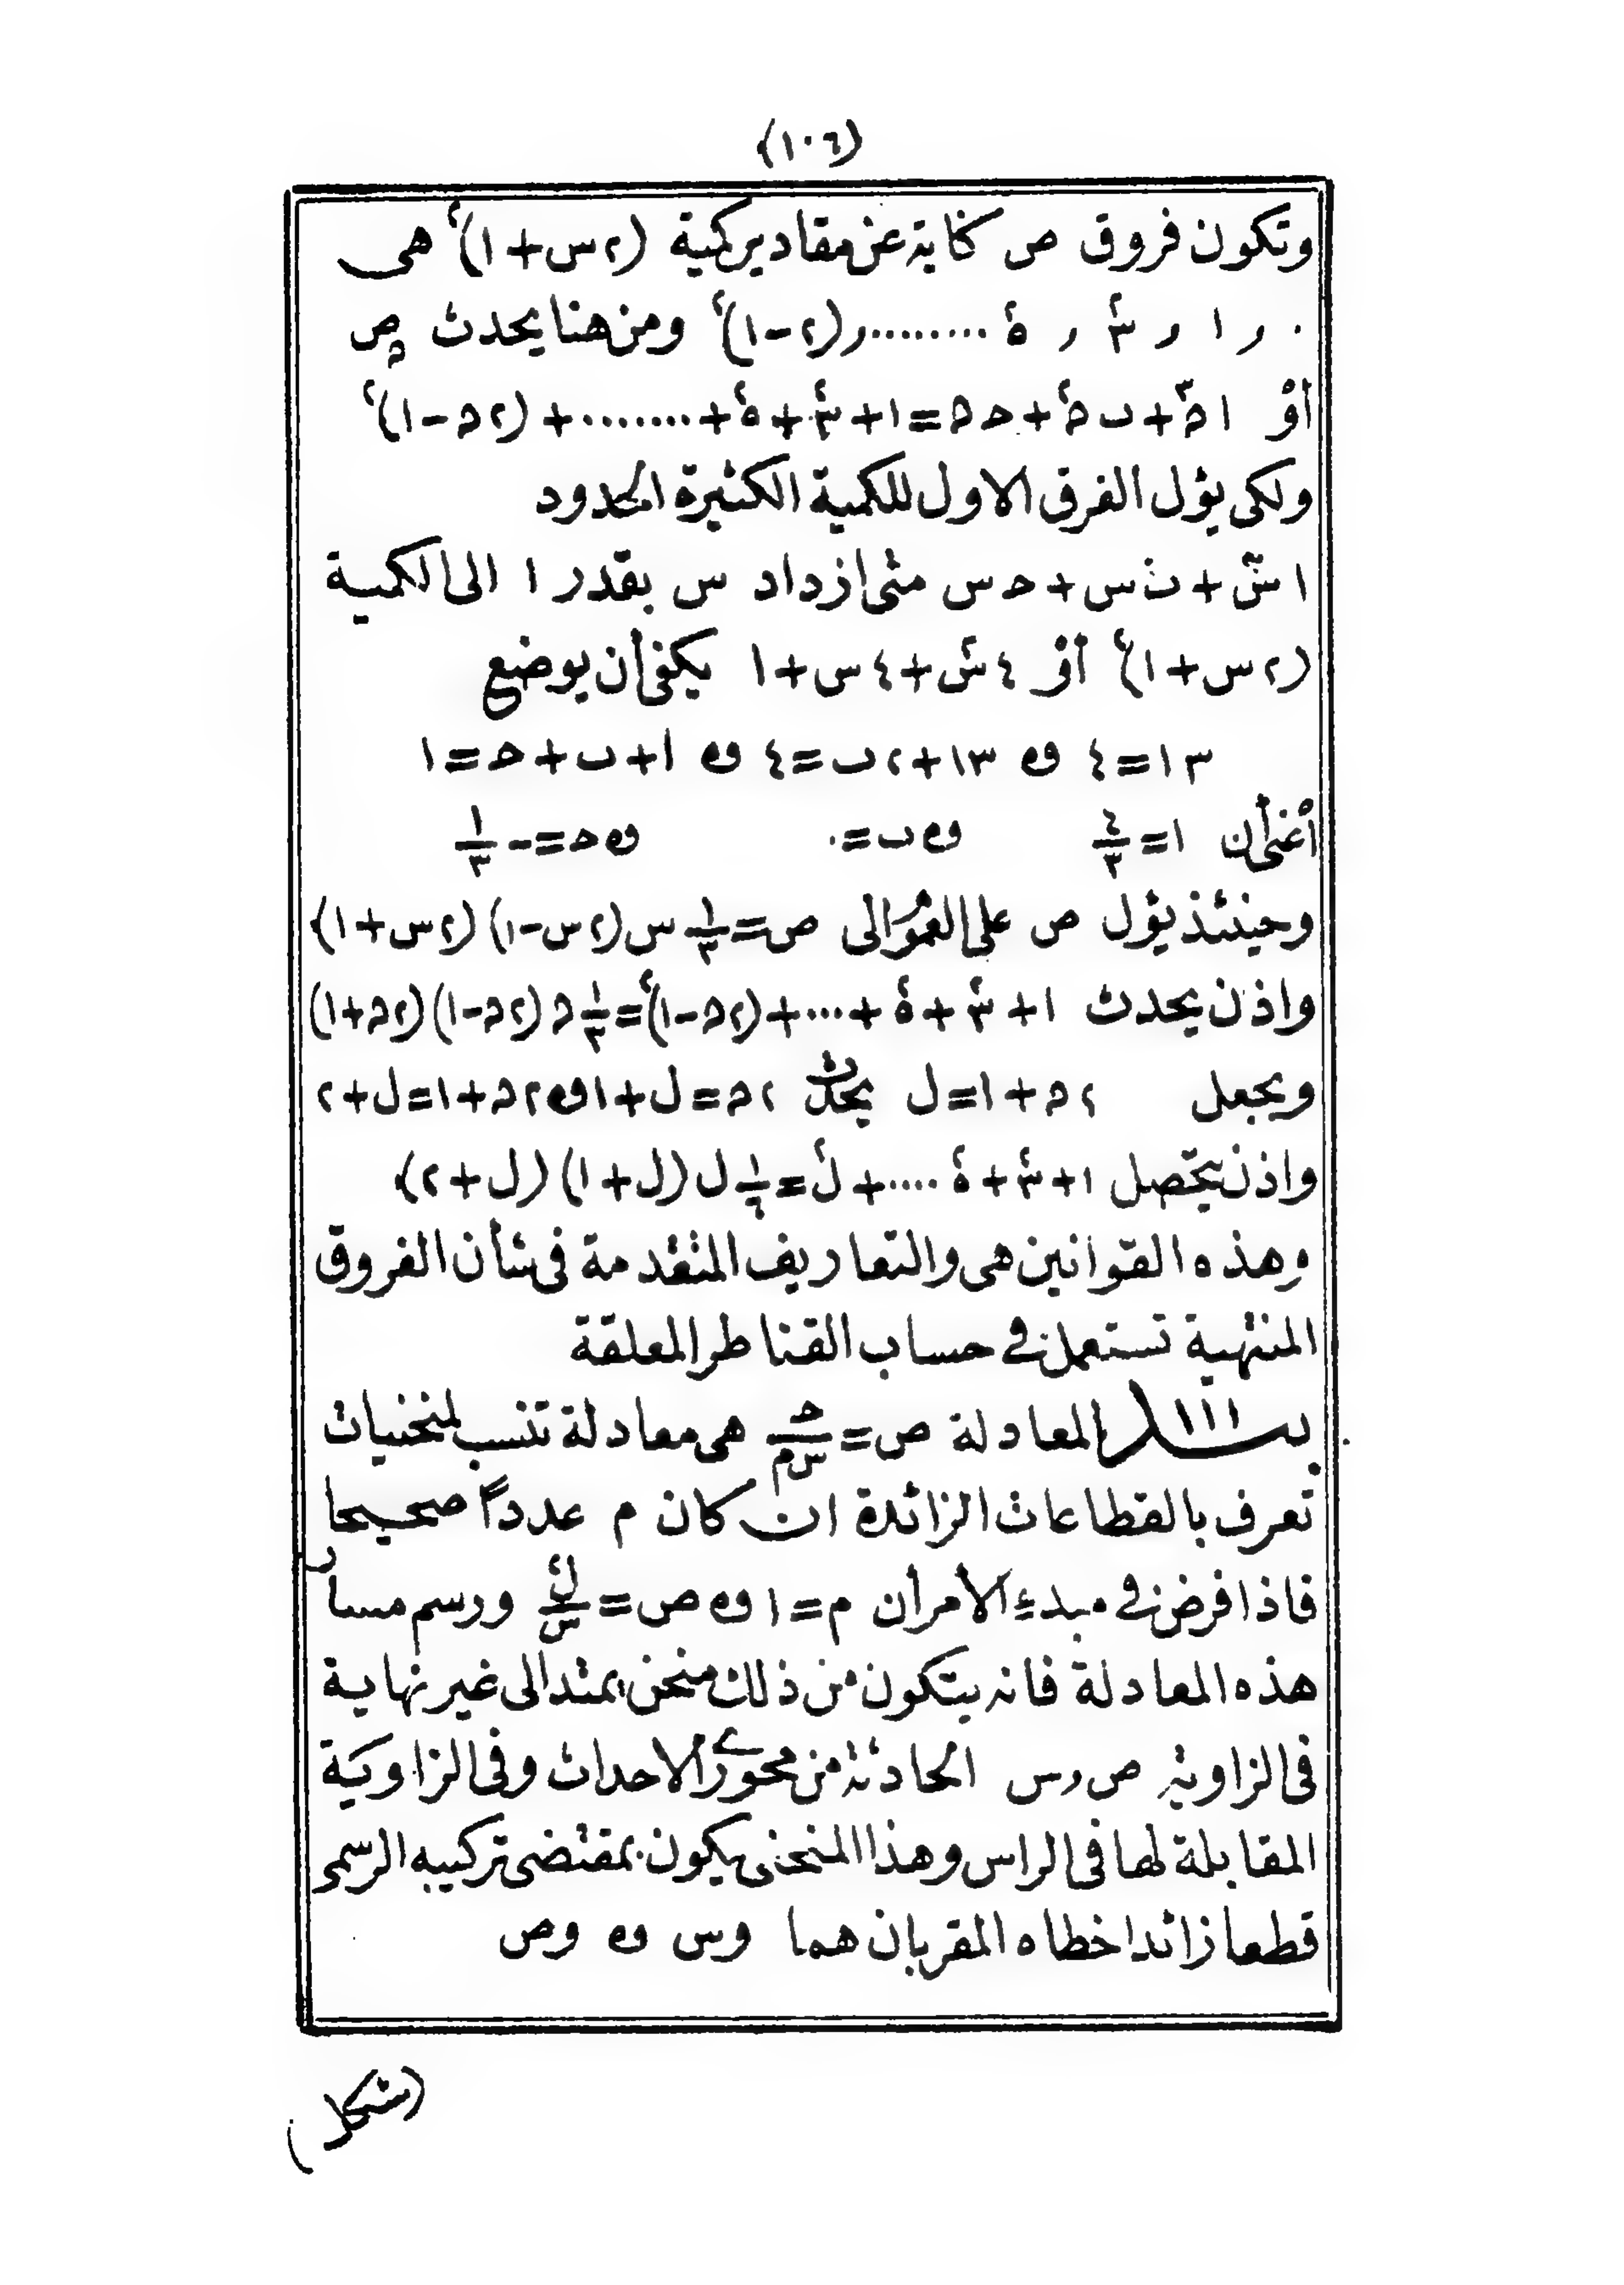 (١٠٦)
وتكون فروق ص كناية عن مقادير كمية (٢س+١)٢ هى
٠ ر ١ ر ٣٢ ر ٥٢ ......... ر(٢-١)٢ ومن هنا يحدث صن
أو ا ن٣+ب ن٢+حـ ن=١+٣٢+٥٢+........+(٢ن-١)٢
ولكى يؤل الفرق الاول للكمية الكثيرة الحدود
ا س٣+ب س٢+حـ س متى ازداد س بقدر ١ الى الكمية
(٢س+١)٢ أو ٤س٢+٤س+١ يكفى أن يوضع
٣ا=٤ و ٣ا+٢ب=٤ و ا+ب+حـ=١
أعنى أن ا=٤/٣ و ب=٠ و حـ=-١/٣
وحينئذ يؤل ص على العموم الى ص=١/٣ س(٢س-١)(٢س+١)
واذن يحدث ١+٣٢+٥٢+...+(٢ن-١)٢=١/٣ ن(٢ن-١)(٢ن+١)
ويجعل ٢ن+١=ل يحدث ٢ن=ل+١ و٢ن+١=ل+٢
واذن يتحصل ١+٣٢+٥٢ ....+ل٢=١/٦ ل(ل+١)(ل+٢)
وهذه القوانين هى والتعاريف المتقدمة فى شأن الفروق
المنتهية تستعمل فى حساب القناطر المعلقة
بند ١١١ المعادلة ص=حـ/سم هى معادلة تنسب لمنحنيات
تعرف بالقطاعات الزائدة ان كان م عددا صحيحا
فاذا فرض فى مبدء الأمر أن م=١ و ص=ك٢/س ورسم مسار
هذه المعادلة فانه يتكون من ذلك منحن يمتد الى غير نهاية
فى الزاوية ص وس الحادثة من محورى الاحداث وفى الزاوية
المقابلة لها فى الراس وهذا المنحنى يكون بمقتضى تركيبه الرسمى
قطعا زائدا خطاه المقربان هما وس و وص
(شكل)